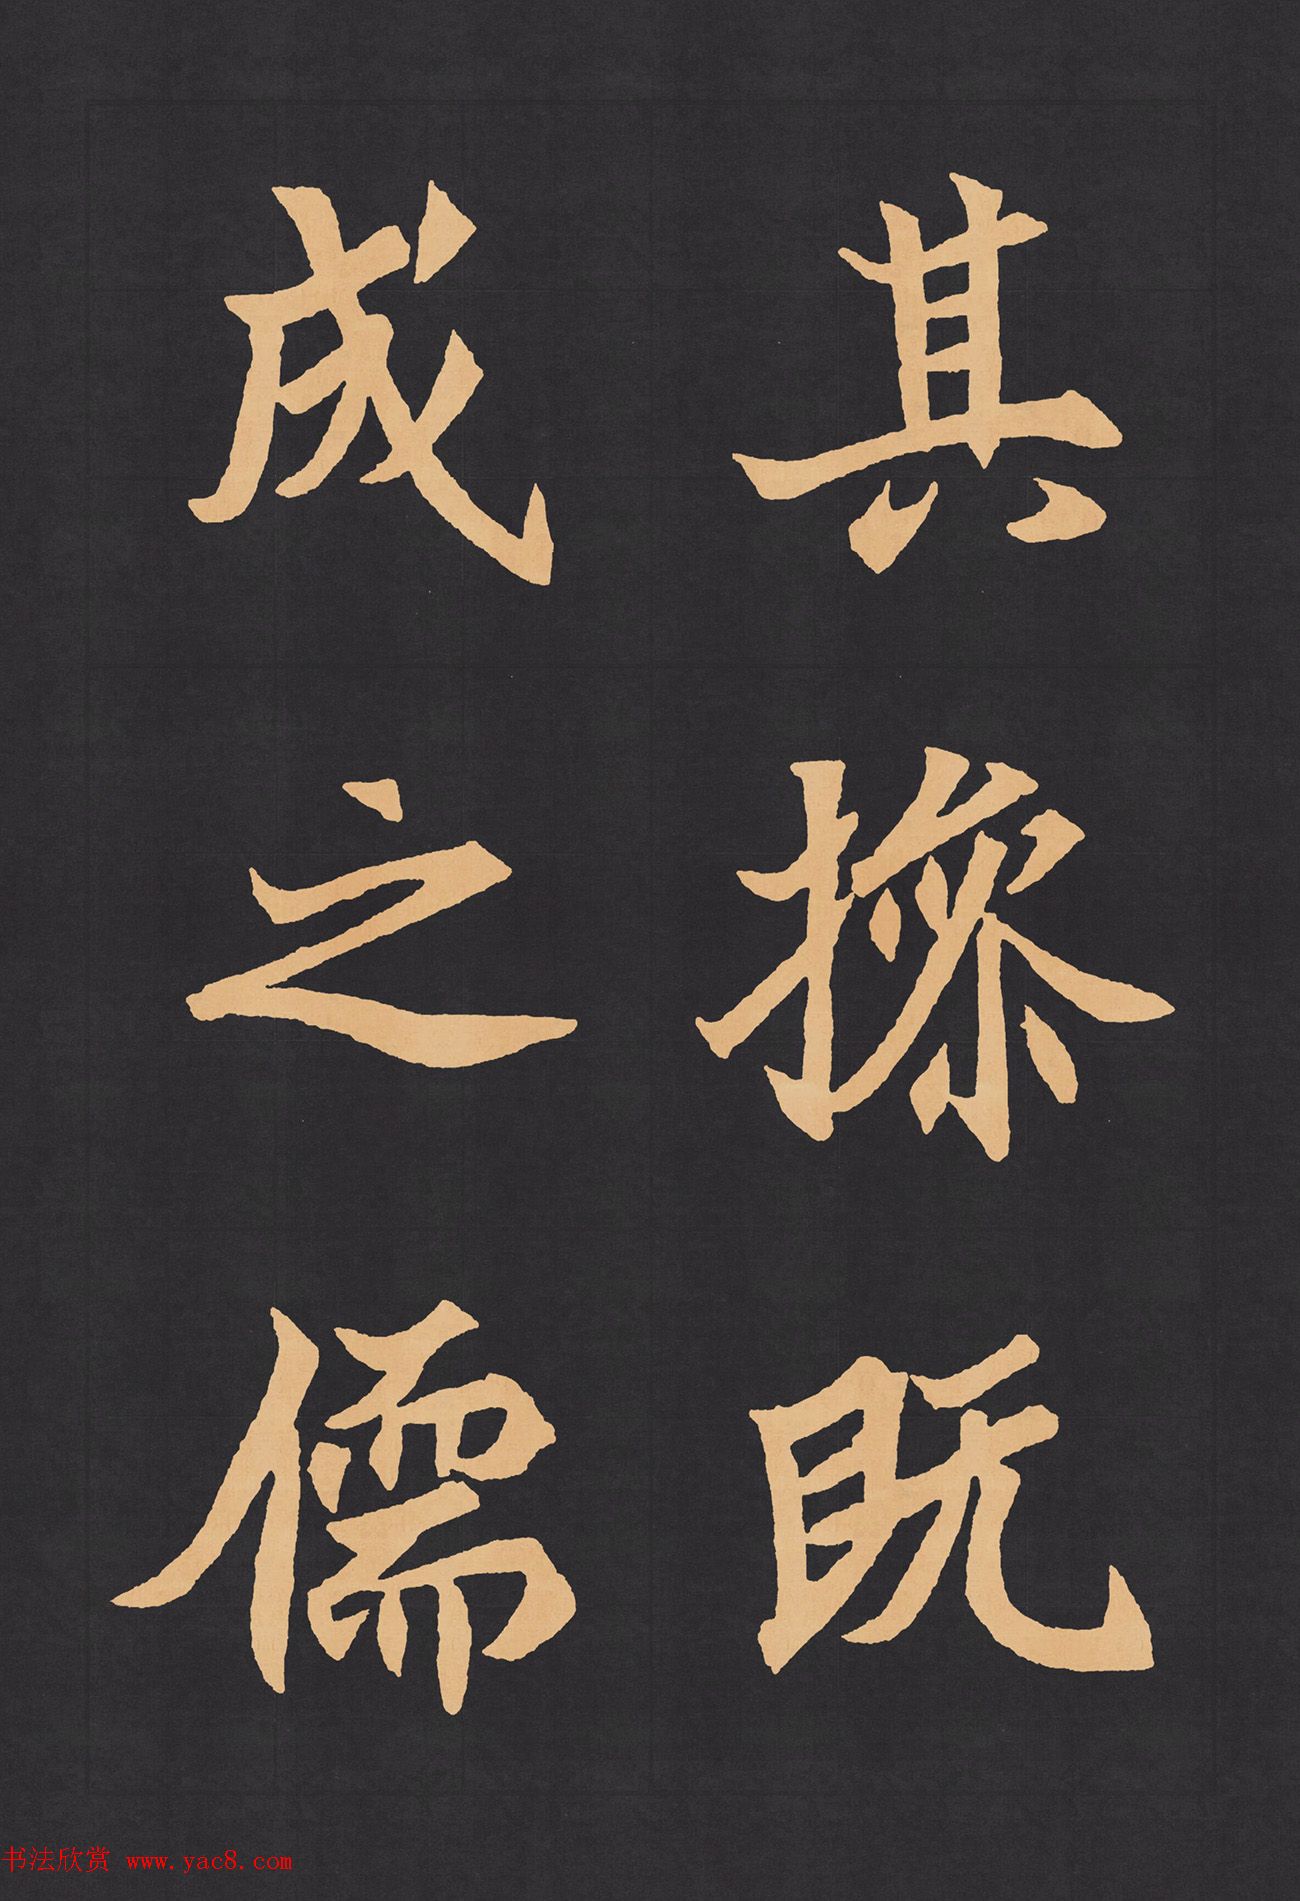 其探既
成之儒
书法欣赏 www.yac8.com